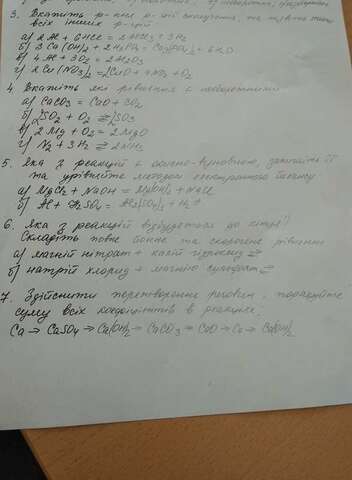 3. Вкажіть р-нне р-ції сполучення, та
всіх інших р-цій
а) 2Al + 6HCl = 2AlCl3 + 3H2
б) 3Ca(OH)2 + 2H3PO4 = Ca3(PO4)2 + 6H2O
в) 4Al + 3O2 = 2Al2O3
г) 2Cu(NO3)2 = 2CuO + 4NO2 + O2
4. Вкажіть які рівняння є необоротними
а) CaCO3 = CaO + CO2
б) 2SO2 + O2 ⇄ 2SO3
в) 2Mg + O2 = 2MgO
г) N2 + 3H2 ⇄ 2NH3
5. Яка з реакцій є окисно-відновною, запишіть її
та урівняйте методом електронного балансу
а) MgCl2 + NaOH = Mg(OH)2 + NaCl
б) Al + H2SO4 = Al2(SO4)3 + H2↑
6. Яка з реакцій відбудеться до кінця?
Складіть повне йонне та скорочене рівняння
а) магній нітрат + калій гідроксид ⇄
б) натрій хлорид + магнію сульфат ⇄
7. Здійснити перетворення речовин, порахуйте
суму всіх коефіцієнтів в реакціях:
Ca → CaSO4 → Ca(OH)2 → CaCO3 → CaO → Ca → Ca(OH)2